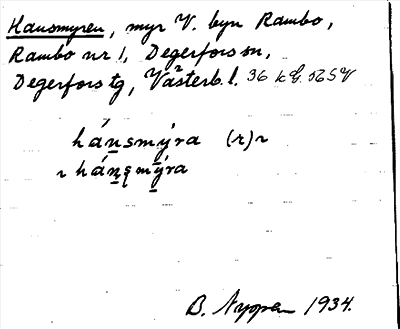 Hansmyren, myr V. byn Rambo,
Rambo nr 1, Degerfors sn,
Degerfors tg, Västerb. l. 36
hánsmýra (r)r
r hánsmýra
B. Nyman 1934.